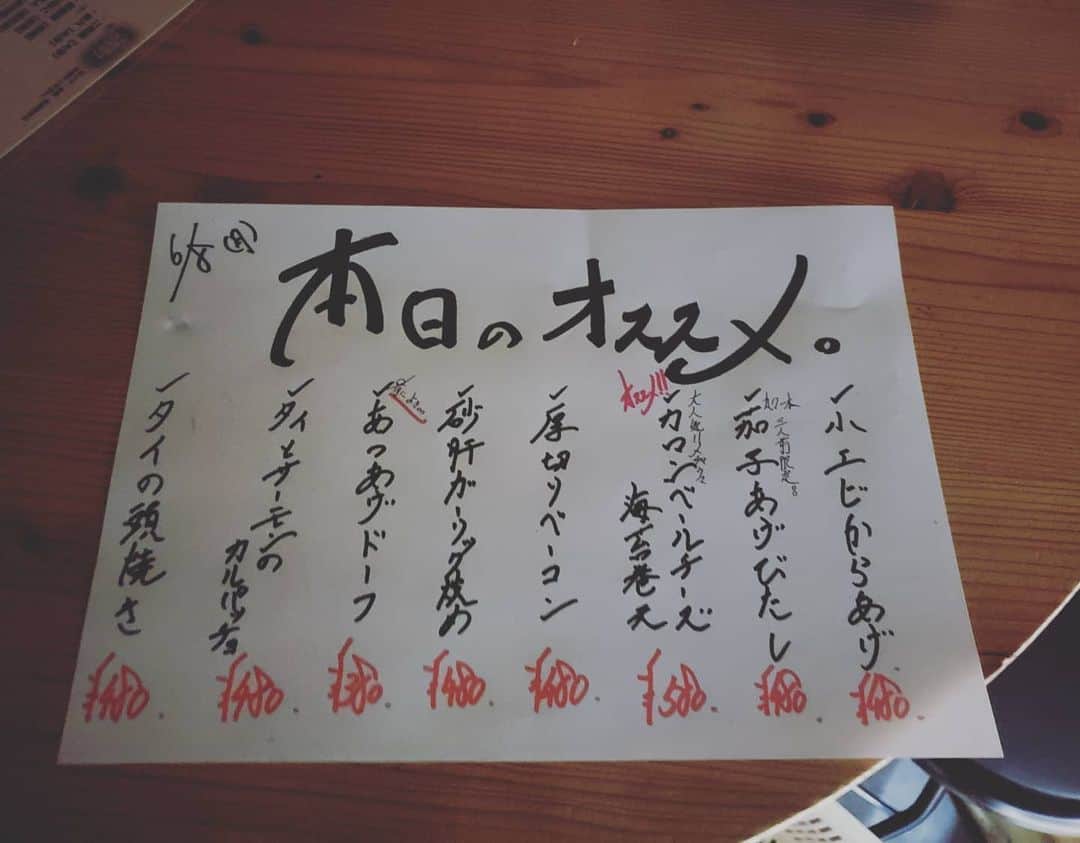 6/8(月)
本日のオススメ。
✓小エビからあげ
¥480.
三人前限定。
✓茄子あげびたし
¥480.
オススメ!!!
✓カロンベールチーズ
海苔巻天
¥580.
✓厚切りベーコン
¥480.
✓砂肝ガーリック焼め
¥480.
✓あつあげドーフ
¥380.
✓タイとサーモンの
カルパッチョ
¥480.
✓タイの頭焼き
¥480.